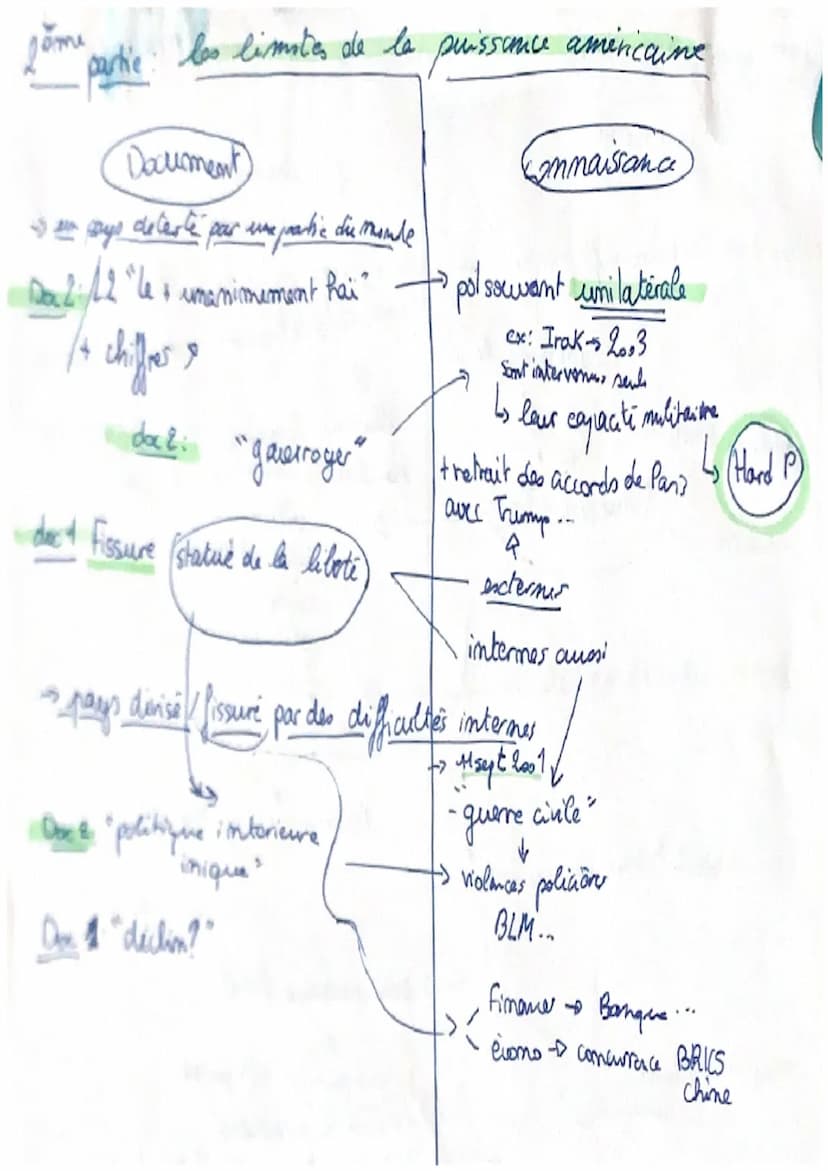 2ème partie : les limites de la puissance américaine
Document
→ un pays détesté par une partie du monde
Doc 2: L2 "le + unanimement haï"
+ chiffres
doc 2: "guerroyer"
doc 1 Fissure statue de la liberté
→ pays divisé / fissuré par des difficultés internes
Doc 2 "politique interieure
inique"
Doc 1 "déclin?"
Connaissance
→ pol souvent unilatérale
ex: Irak → 2003
sont intervenus seuls
↳ leur capacité militaire
↳ Hard P
+ retrait des accords de Paris
avec Trump...
externes
internes aussi
→ 11 sept 2001
- "guerre civile"
→ violences policières
BLM...
Finance → Banque...
écono → concurrence BRICS
Chine